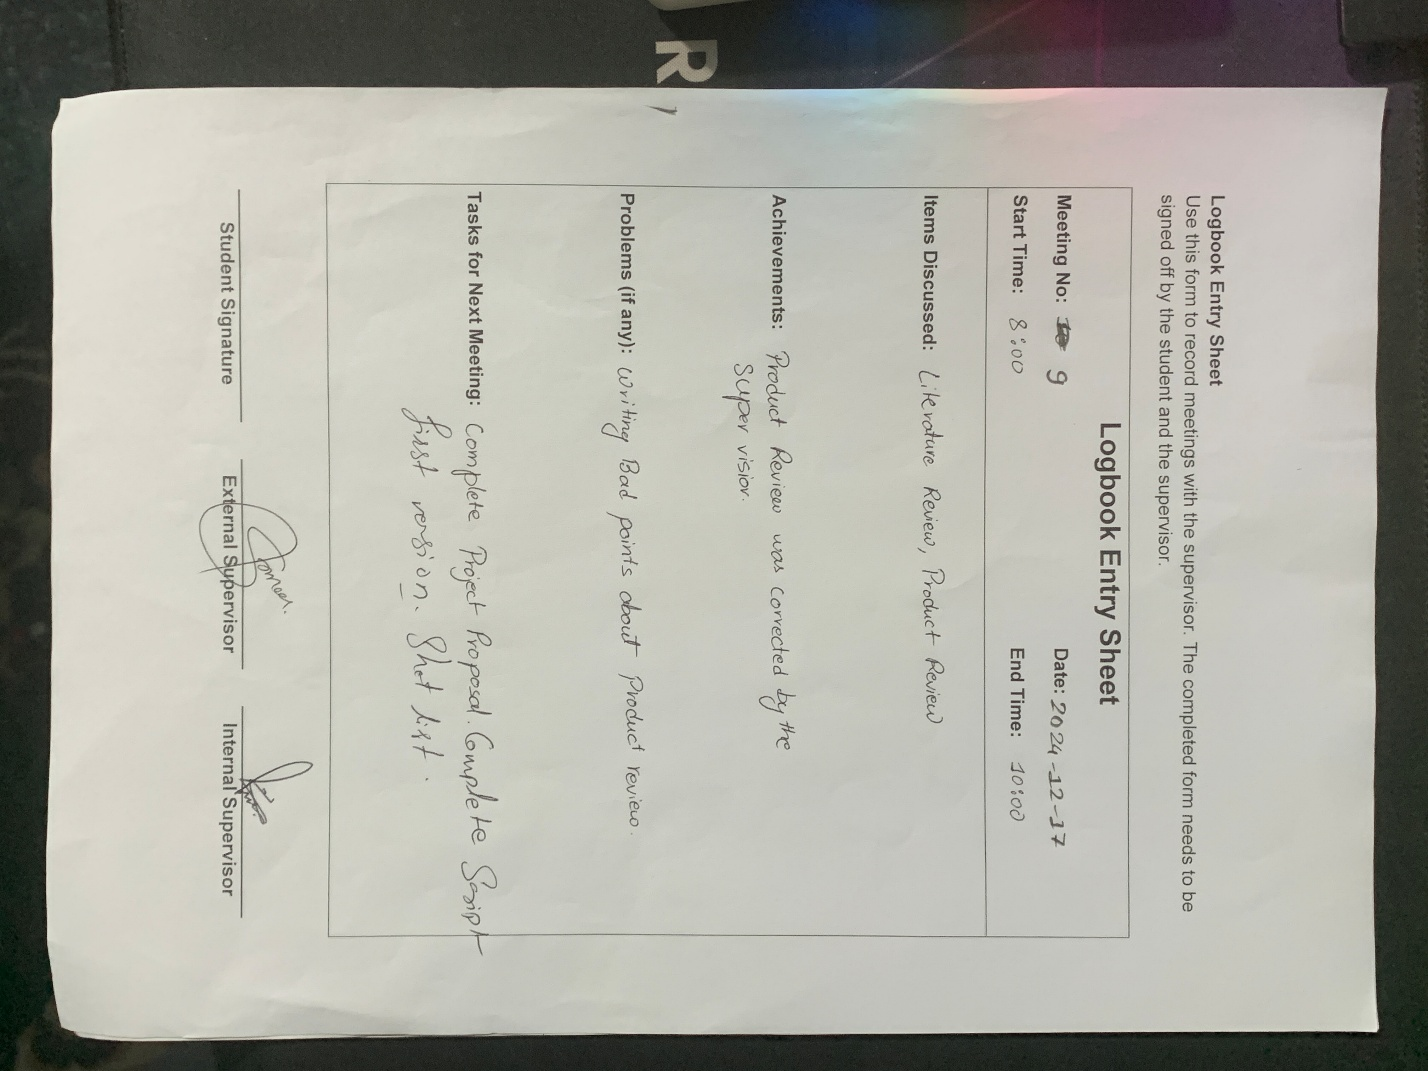 R
Logbook Entry Sheet
Use this form to record meetings with the supervisor. The completed form needs to be
signed off by the student and the supervisor.
Logbook Entry Sheet
Meeting No: 9 Date: 2024-12-17
Start Time: 8:00 End Time: 10:00
Items Discussed: Literature Review, Product Review
Achievements: Product Review was corrected by the
Super vision.
Problems (if any): Writing Bad points about Product review.
Tasks for Next Meeting: Complete Project Proposal. Complete Script
first version. Shot list.
Student Signature External Supervisor Internal Supervisor